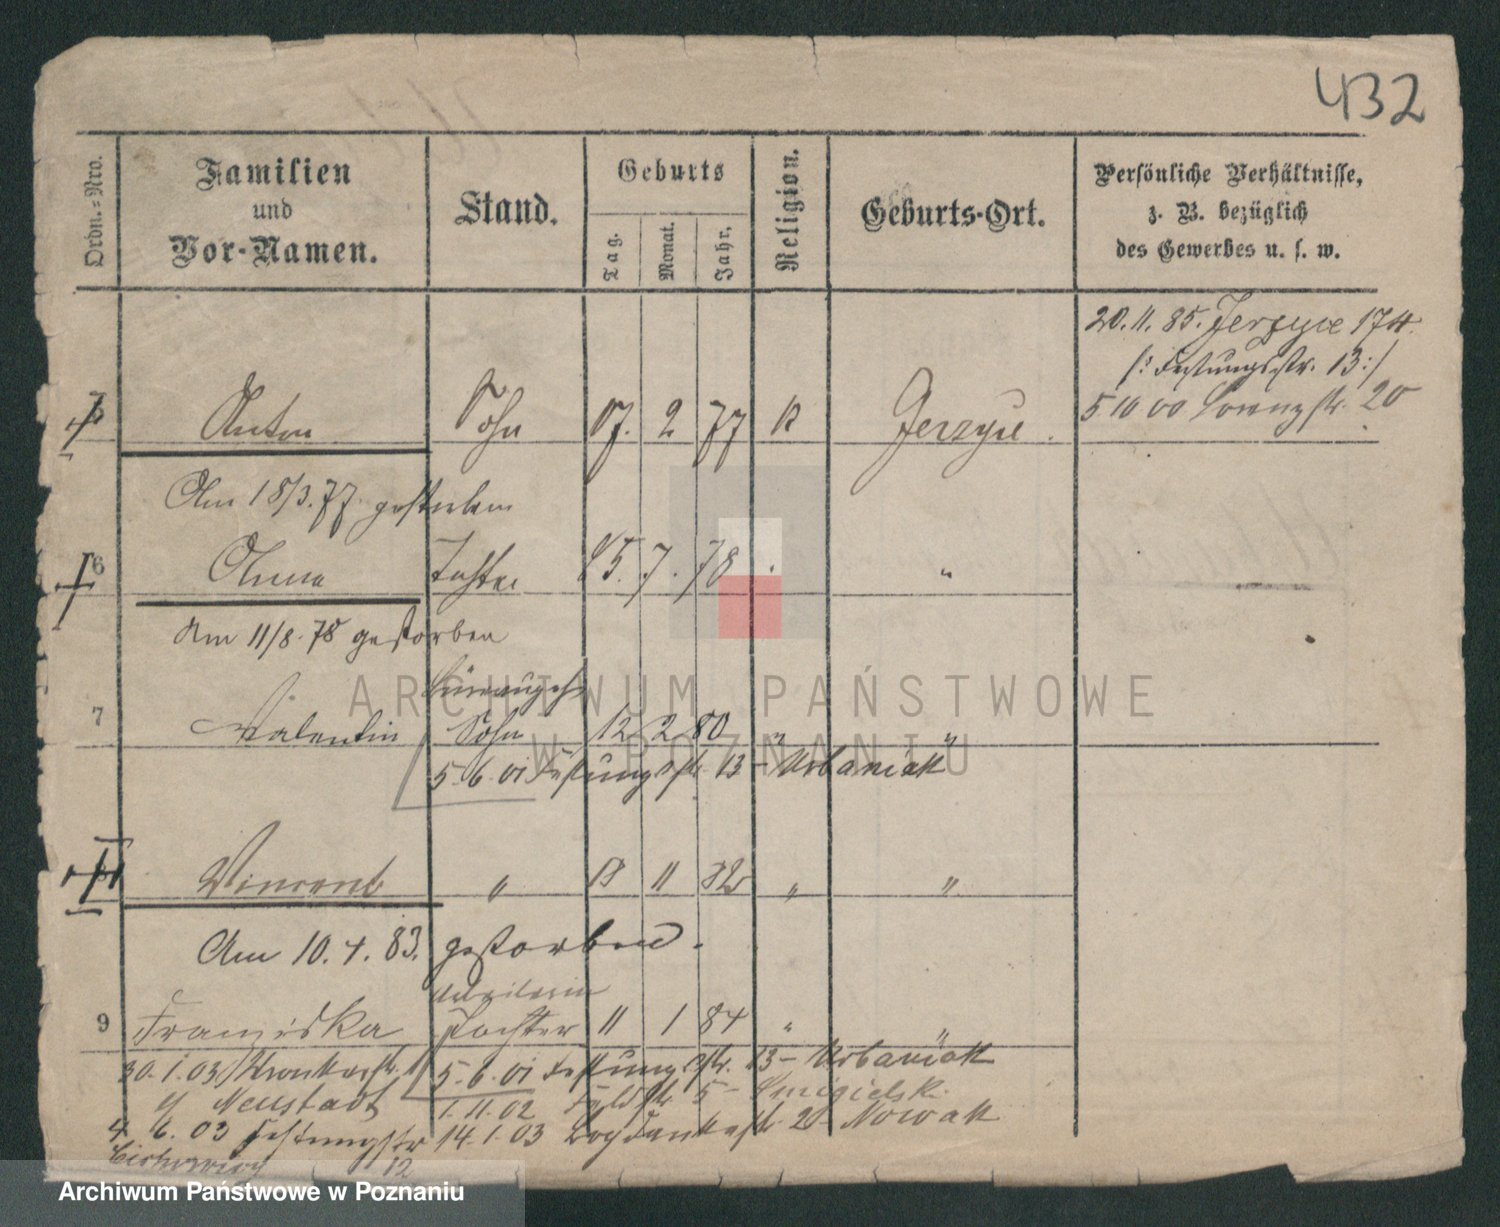 432
Ordn.=Nro.
Familien
und
Vor-Namen.
Stand.
Geburts
Tag.
Monat.
Jahr.
Religion.
Geburts-Ort.
Persönliche Verhältnisse,
z. B. bezüglich
des Gewerbes u. s. w.
20.11.85. Jerzyce 174.
/: Festungsstr. 13:/
5 10 00 Lorenzstr. 20
5 Anton Sohn 17. 2 77 k Jerzyce.
Am 18/3.77. gestorben
6 Anna Tochter 25. 7. 78 "
Am 11/8.78 gestorben
7 Valentin Sohn 12 2 80 " "
5.6.01 Festungsstr. 13 - Urbaniak
Vincent " 11 82 " "
Am 10.4.83. gestorben.
9 Franziska Tochter 11 1 84 " "
30.1.03 5.6.01 Festungsstr. 13 - Urbaniak
Neustadt 1.11.02 5 - Smigielski
4. 6.03 Festungstr 14.1.03 20 - Nowak
12
ARCHIWUM PAŃSTWOWE
W POZNANIU
Archiwum Państwowe w Poznaniu